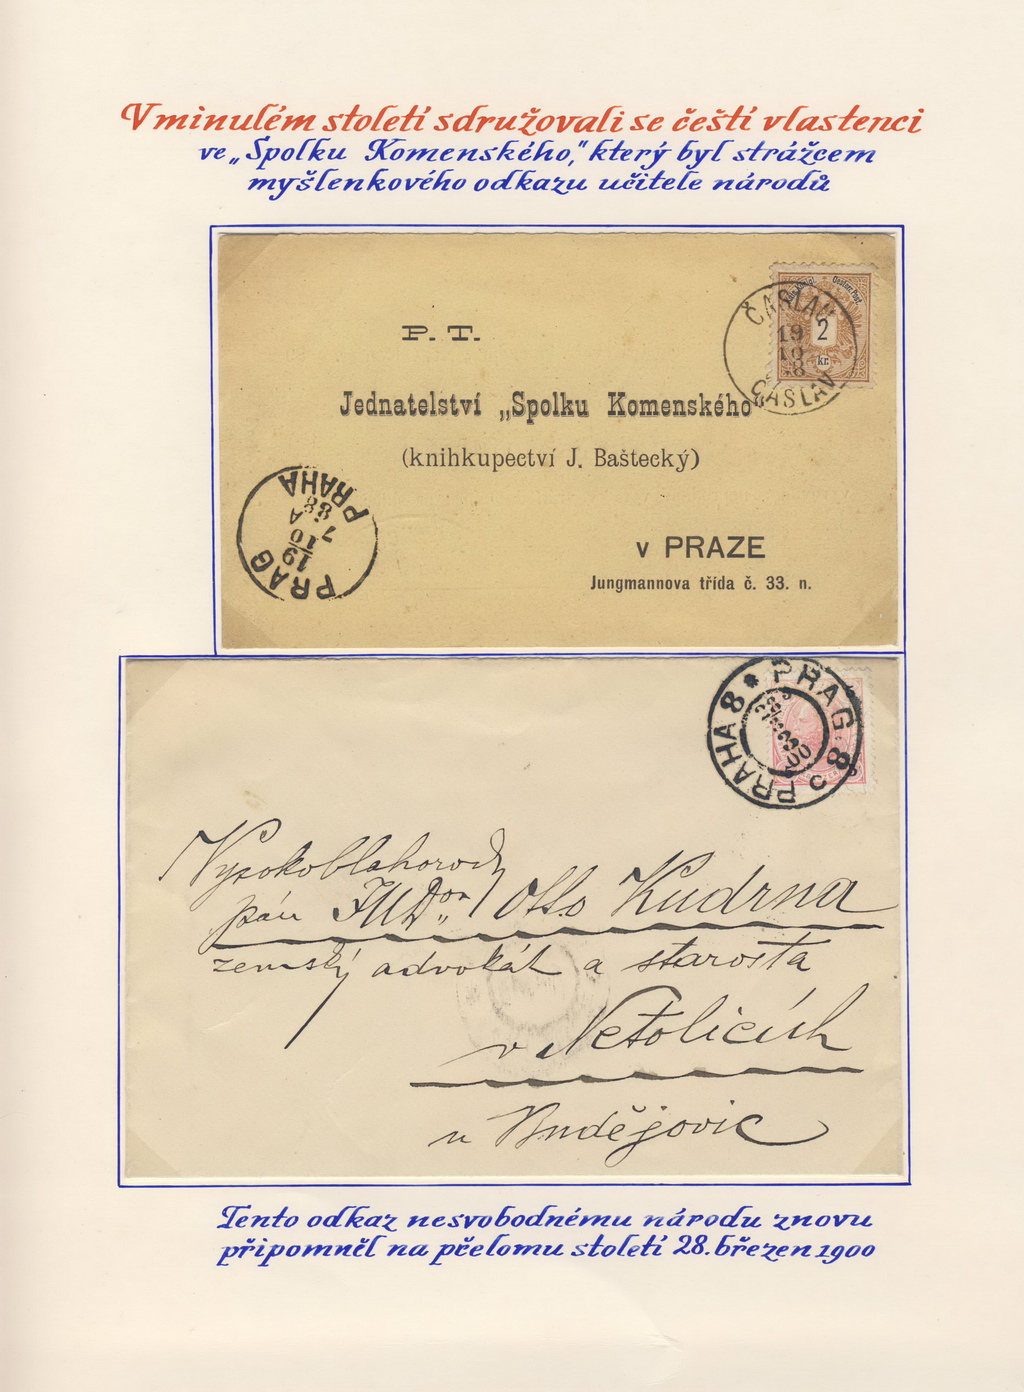 V minulém století sdružovali se čeští vlastenci
ve „Spolku Komenského," který byl strážcem
myšlenkového odkazu učitele národů
P. T.
ČASLAU
19
10
88
ČÁSLAV
2
kr.
Jednatelství „Spolku Komenského"
(knihkupectví J. Baštecký)
PRAG
19
10
7 A
88
PRAHA
v PRAZE
Jungmannova třída č. 33. n.
PRAG 8
PRAHA 8
28
00
Vysokoblahorodý
pán JUDor. Otto Kudrna
zemský advokát a starosta
v Netolicích
u Budějovic
Tento odkaz nesvobodnému národu znovu
připomněl na přelomu století 28. březen 1900